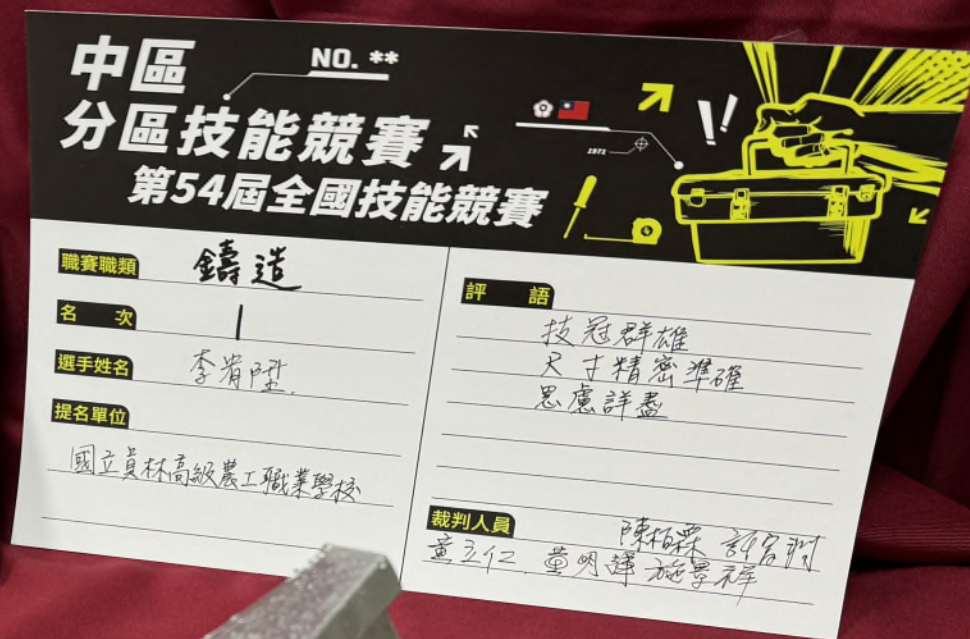 中區
NO. **
分區技能競賽
第54屆全國技能競賽
1971
職賽職類 鑄造
名次 1
選手姓名 李宥陞.
提名單位
國立員林高級農工職業學校
評語
技冠群雄
尺寸精密準確
思慮詳盡
裁判人員 陳柏霖
黃立仁 董明輝 施景祥